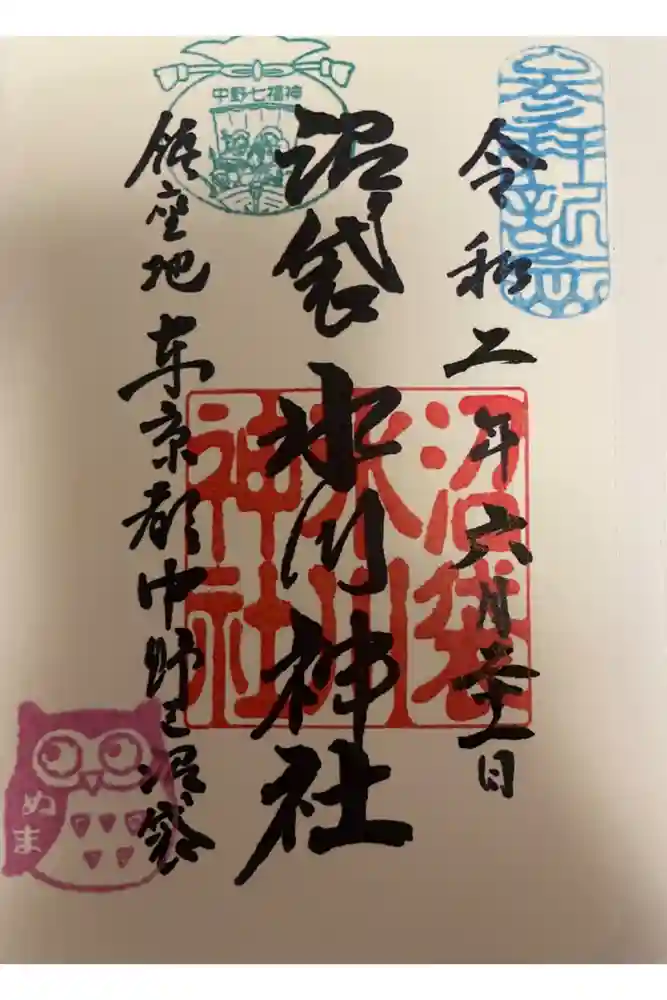 参拝記念
令和二年六月廿一日
沼袋氷川神社
沼袋
氷川
神社
中野七福神
鎮座地 東京都中野区沼袋
ぬま